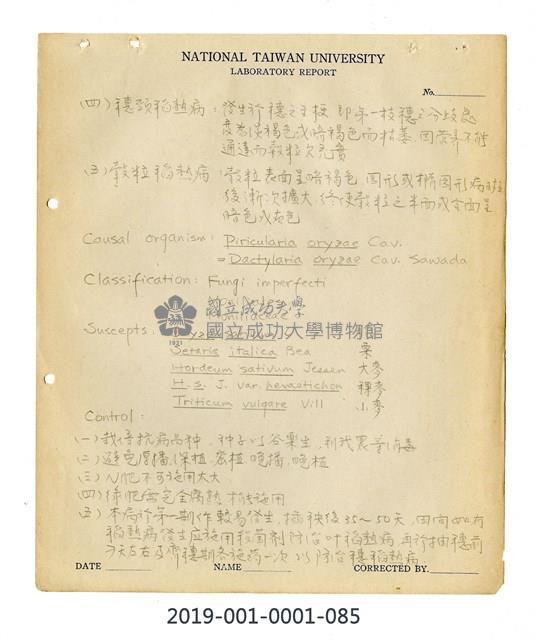 NATIONAL TAIWAN UNIVERSITY
LABORATORY REPORT
No.
(四) 穗頸稻熱病: 發生於穗之主梗 即第一枝穗之分歧處
為淡褐色或暗褐色而枯萎, 因營養不能
通達而穀粒欠充實
(五) 穀粒稻熱病: 穀粒表面呈暗褐色 圓形或橢圓形病斑
後漸次擴大, 終使穀粒之半面或全面呈
暗色或灰色
Causal organism: Piricularia oryzae Cav.
= Dactylaria oryzae Cav. Sawada
Classification: Fungi imperfecti
國立成功大學
國立成功大學博物館
1931
Suscepts:
Setaris italica Bea 栗
Hordeum sativum Jessen 大麥
H. s. J. var. hexastichon 裸麥
Triticum vulgare Vill 小麥
Control:
(一) 栽培抗病品種, 種子以谷樂生, 消毒
(二) 避免厚播, 深植, 密植, 晚播, 晚植
(三) N肥不可施用太大
(四) 堆肥需完全腐熟 施用
(五) 本病於第一期作較易發生, 插秧後35~50天, 田間 有
稻熱病發生應施用殺菌劑防治叶稻熱病 再於抽穗前
7天左右及齊穗期各施药一次 以防治穗稻熱病
DATE NAME CORRECTED BY.
2019-001-0001-085